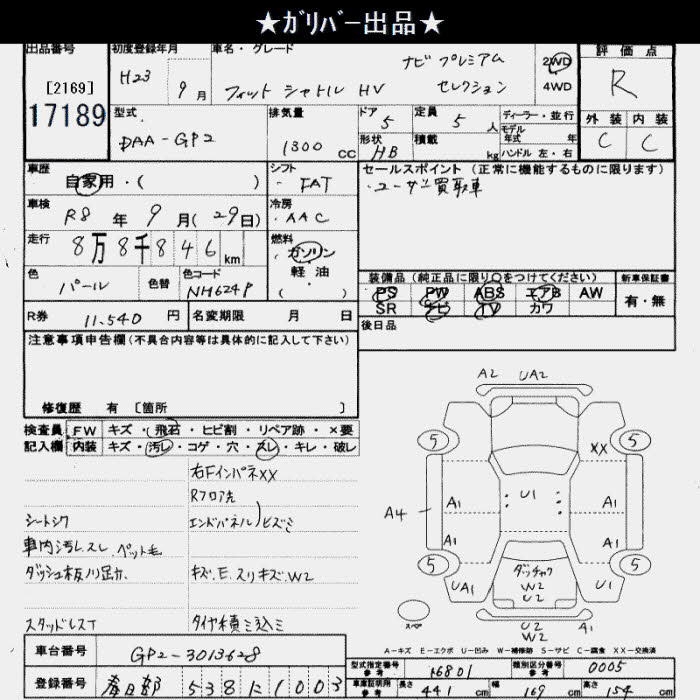 ★ｶﾞﾘﾊﾞｰ出品★
出品番号
[2169]
17189
初度登録年月
H23 9月
車名・グレード
フィット シャトル HV ナビ プレミアム セレクション
2WD
4WD
評価点
R
外装 内装
C C
型式
DAA-GP2
排気量
1300 cc
ドア
5
形状
HB
定員
5 人
積載
kg
ディーラー・並行
モデル年式 年
ハンドル 左・右
車歴
自家用・( )
シフト
FAT
車検
R8年 9月(29日)
冷房
AAC
走行
8万8千846km
燃料
ガソリン
軽油
( )
色
パール
色替
色コード
NH624P
R券 11,540円
名変期限 月 日
セールスポイント(正常に機能するものに限ります)
・ユーザー買取車
装備品(純正品に限り○をつけてください)
PS PW ABS エアB AW
SR ナビ TV カワ
新車保証書
有・無
後日品
注意事項申告欄(不具合内容等は具体的に記入して下さい)
修復歴 有 [箇所 ]
検査員記入欄
FW キズ・飛石・ヒビ割・リペア跡・×要
内装 キズ・汚レ・コゲ・穴・スレ・キレ・破レ
右FインパネXX
Rフロア先
エンドパネル)ヒズミ
シートシワ
車内汚レスレ.ペット毛
ダッシュ板ハリ跡
キズ.E.スリキズ.W2
スタッドレスT
タイヤ積ミ込ミ
A2 UA2
5 5
XX
A1 U1 A1
A4
A1 A1
5 5
UA1 U1
ダッチャク
W2
U2
スペ
U2
W2
A1
A-キズ E-エクボ U-凹み W-補修跡 S-サビ C-腐食 XX-交換済
車台番号 GP2-3013628
登録番号 春日部 538 に 1003
型式指定番号 参考 16801
類別区分番号 参考 0005
車庫証明用 参考 長さ 441 cm 幅 169 cm 高さ 154 cm